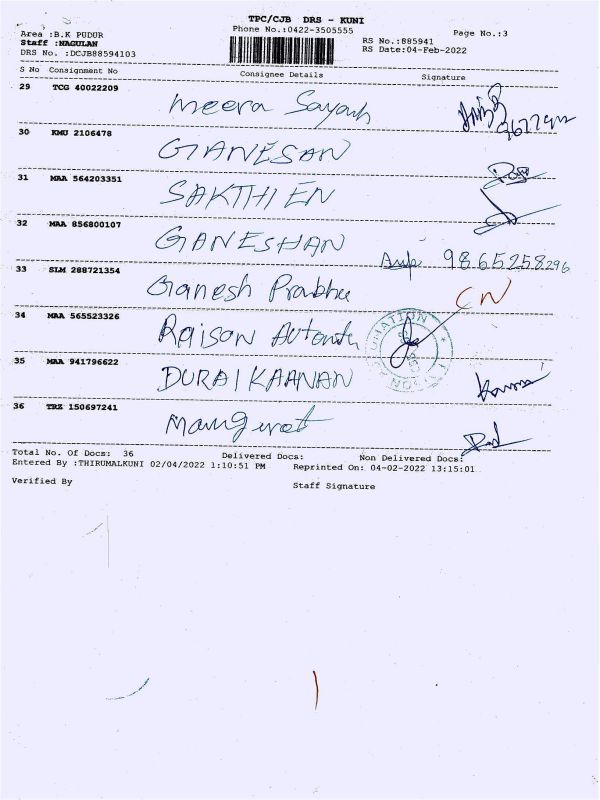 TPC/CJB DRS - KUNI
Phone No.:0422-3505555
Page No.:3
Area :B.K PUDUR
RS No.:885941
Staff :NAGULAN
RS Date:04-Feb-2022
DRS No. :DCJB88594103
S No Consignment No Consignee Details Signature
29 TCG 40022209 meera
30 KMU 2106478 GANESAN
31 MAA 564203351 SAKTHI EN
32 MAA 856800107 GANESHAN
9865258296
33 SLM 288721354 Ganesh Prabhu CN
34 MAA 565523326 Raison
35 MAA 941796622 DURAIKAANAN
36 TRZ 150697241
Total No. Of Docs: 36 Delivered Docs: Non Delivered Docs:
Entered By :THIRUMALKUNI 02/04/2022 1:10:51 PM Reprinted On: 04-02-2022 13:15:01
Verified By Staff Signature